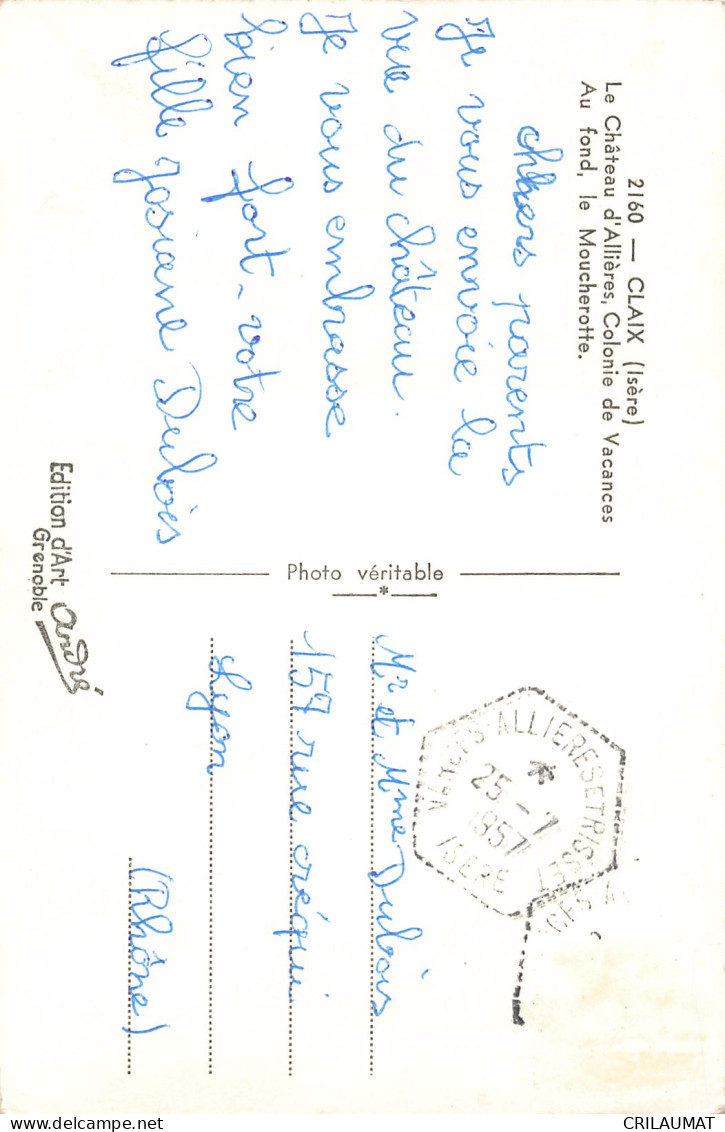 2160 — CLAIX (Isère)
Le Château d'Allières, Colonie de Vacances
Au fond, le Moucherotte.
chers parents
Je vous envoie la
vue du château.
Je vous embrasse
bien fort - votre
fille Josiane Dubois
Edition d'Art André
Grenoble
Photo véritable
ALLIERES ET RISSET
25-7
1957
ISERE
Mr et Mme Dubois
157 rue créqui
Lyon
(Rhône)
delcampe.net
CRILAUMAT